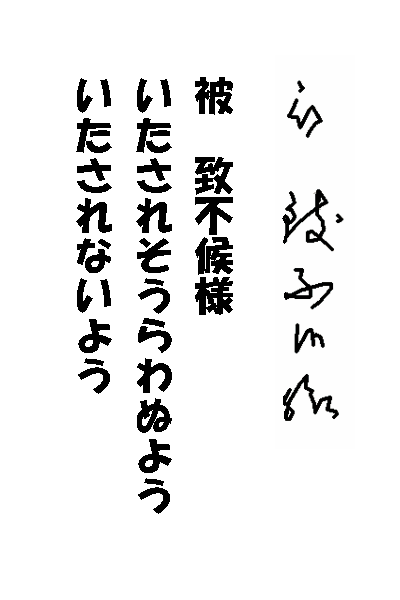 被 致不候様
被 致不候様
いたされそうらわぬよう
いたされないよう